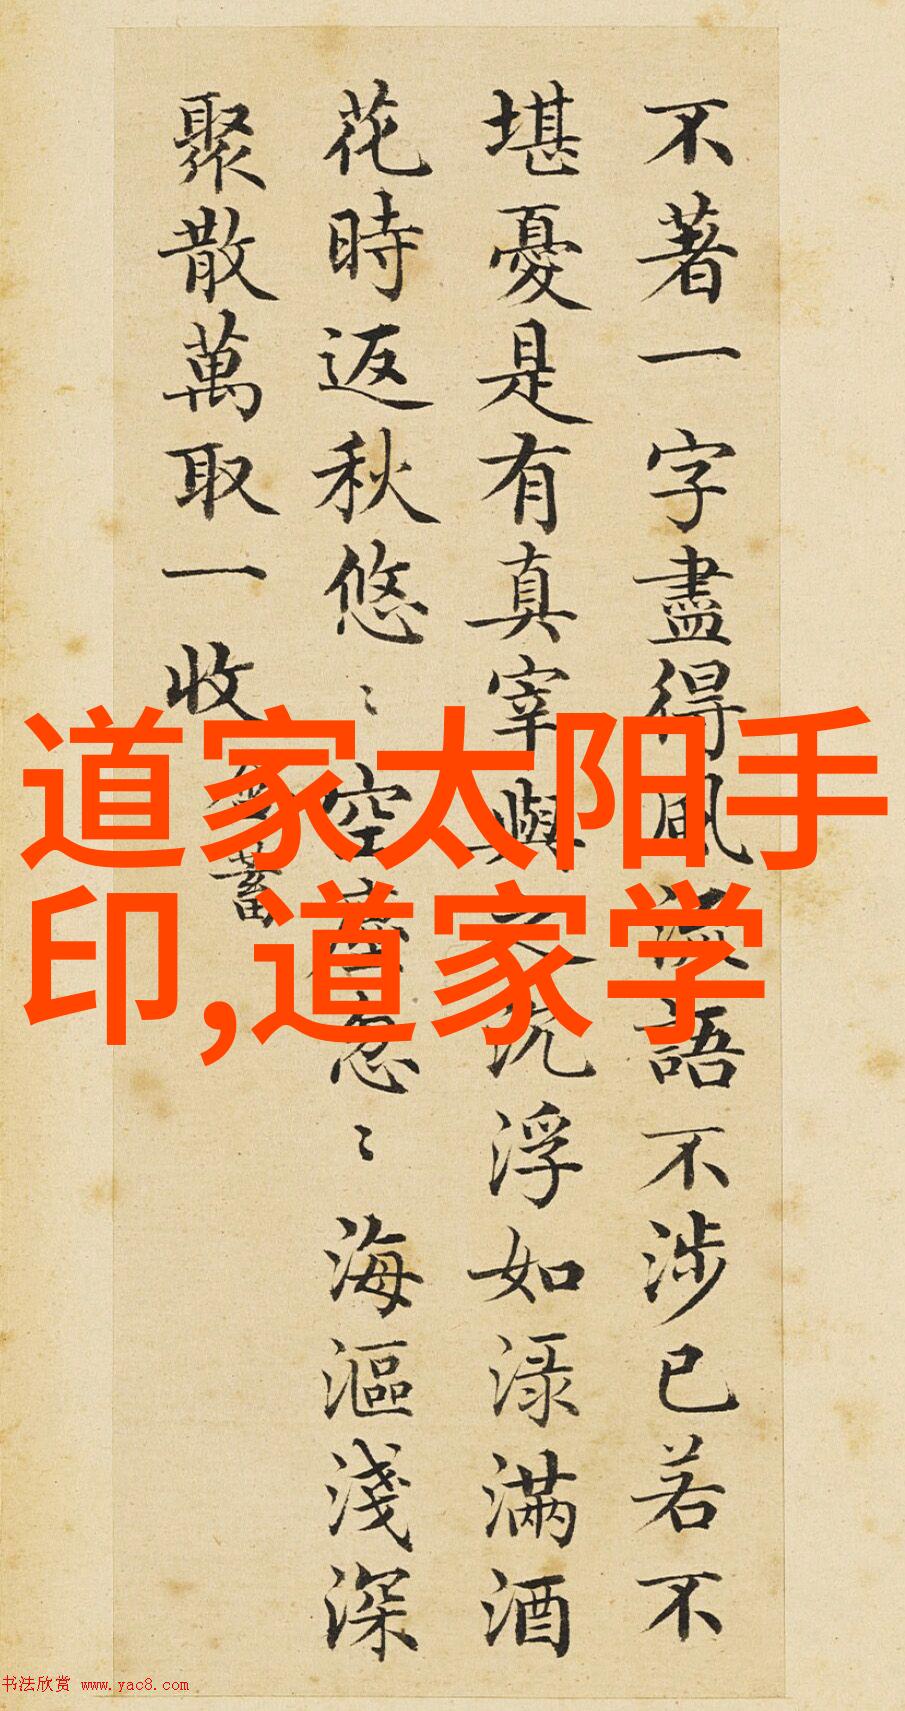 不著一字盡得風流語不涉已若不
堪憂是有真宰與之沉浮如渌滿酒
花時返秋悠〻空塵忽〻海漚淺深
聚散萬取一收 含蓄
道家太阳手
印,道家学
书法欣赏 www.yac8.com